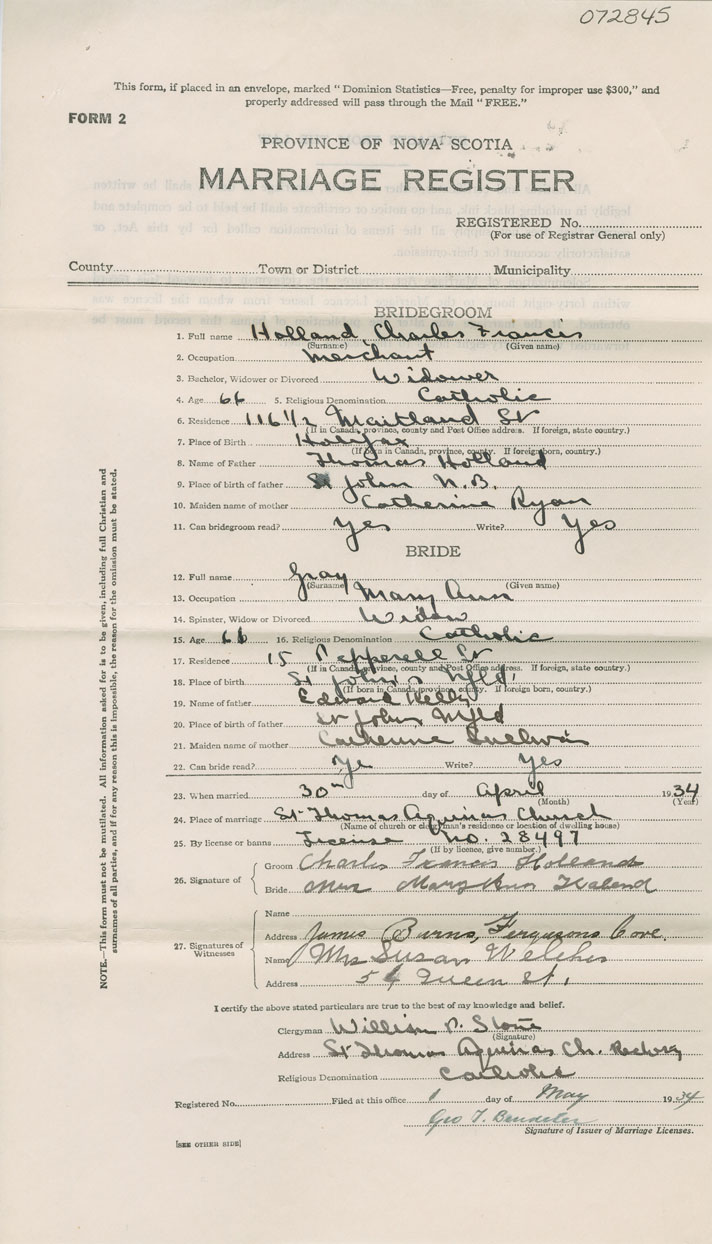 072845
This form, if placed in an envelope, marked "Dominion Statistics—Free, penalty for improper use $300," and
properly addressed will pass through the Mail "FREE."
FORM 2
PROVINCE OF NOVA SCOTIA
MARRIAGE REGISTER
REGISTERED No.
(For use of Registrar General only)
County Town or District Municipality
BRIDEGROOM
1. Full name Holland Charles Francis
(Surname) (Given name)
2. Occupation Merchant
3. Bachelor, Widower or Divorced Widower
4. Age 66 5. Religious Denomination Catholic
6. Residence 116 1/2 Maitland St
(If in Canada, province, county and Post Office address. If foreign, state country.)
7. Place of Birth Halifax
(If born in Canada, province, county. If foreign born, country.)
8. Name of Father Thomas Holland
9. Place of birth of father St John N.B.
10. Maiden name of mother Catherine Ryan
11. Can bridegroom read? Yes Write? Yes
BRIDE
12. Full name Gray
(Surname) (Given name)
13. Occupation Mary Ann
14. Spinster, Widow or Divorced Widow
15. Age 66 16. Religious Denomination Catholic
17. Residence 15 Pepperell St
(If in Canada, province, county and Post Office address. If foreign, state country.)
18. Place of birth St John's Nfld.
(If born in Canada, province, county. If foreign born, country.)
19. Name of father Edward Kelly
20. Place of birth of father St Johns Nfld
21. Maiden name of mother Catherine Sullivan
22. Can bride read? Ye Write? Yes
23. When married 30th day of April 1934
(Month) (Year)
24. Place of marriage St Thomas Aquinas Church
(Name of church or clergyman's residence or location of dwelling house)
25. By license or banns License No. 28497
(If by licence, give number.)
26. Signature of
Groom Charles Francis Holland
Bride Mrs Mary Ann
27. Signatures of
Witnesses
Name
Address James Burns, Fergusons Cove.
Name Mrs Susan
Address 54 Queen St.
I certify the above stated particulars are true to the best of my knowledge and belief.
Clergyman William P. Stone
(Signature)
Address St Thomas Aquinas Ch.
Religious Denomination Catholic
Registered No. Filed at this office 1 day of May 1934
Geo T.
Signature of Issuer of Marriage Licenses.
[SEE OTHER SIDE]
NOTE.—This form must not be mutilated. All information asked for is to be given, including full Christian and
surnames of all parties, and if for any reason this is impossible, the reason for the omission must be stated.